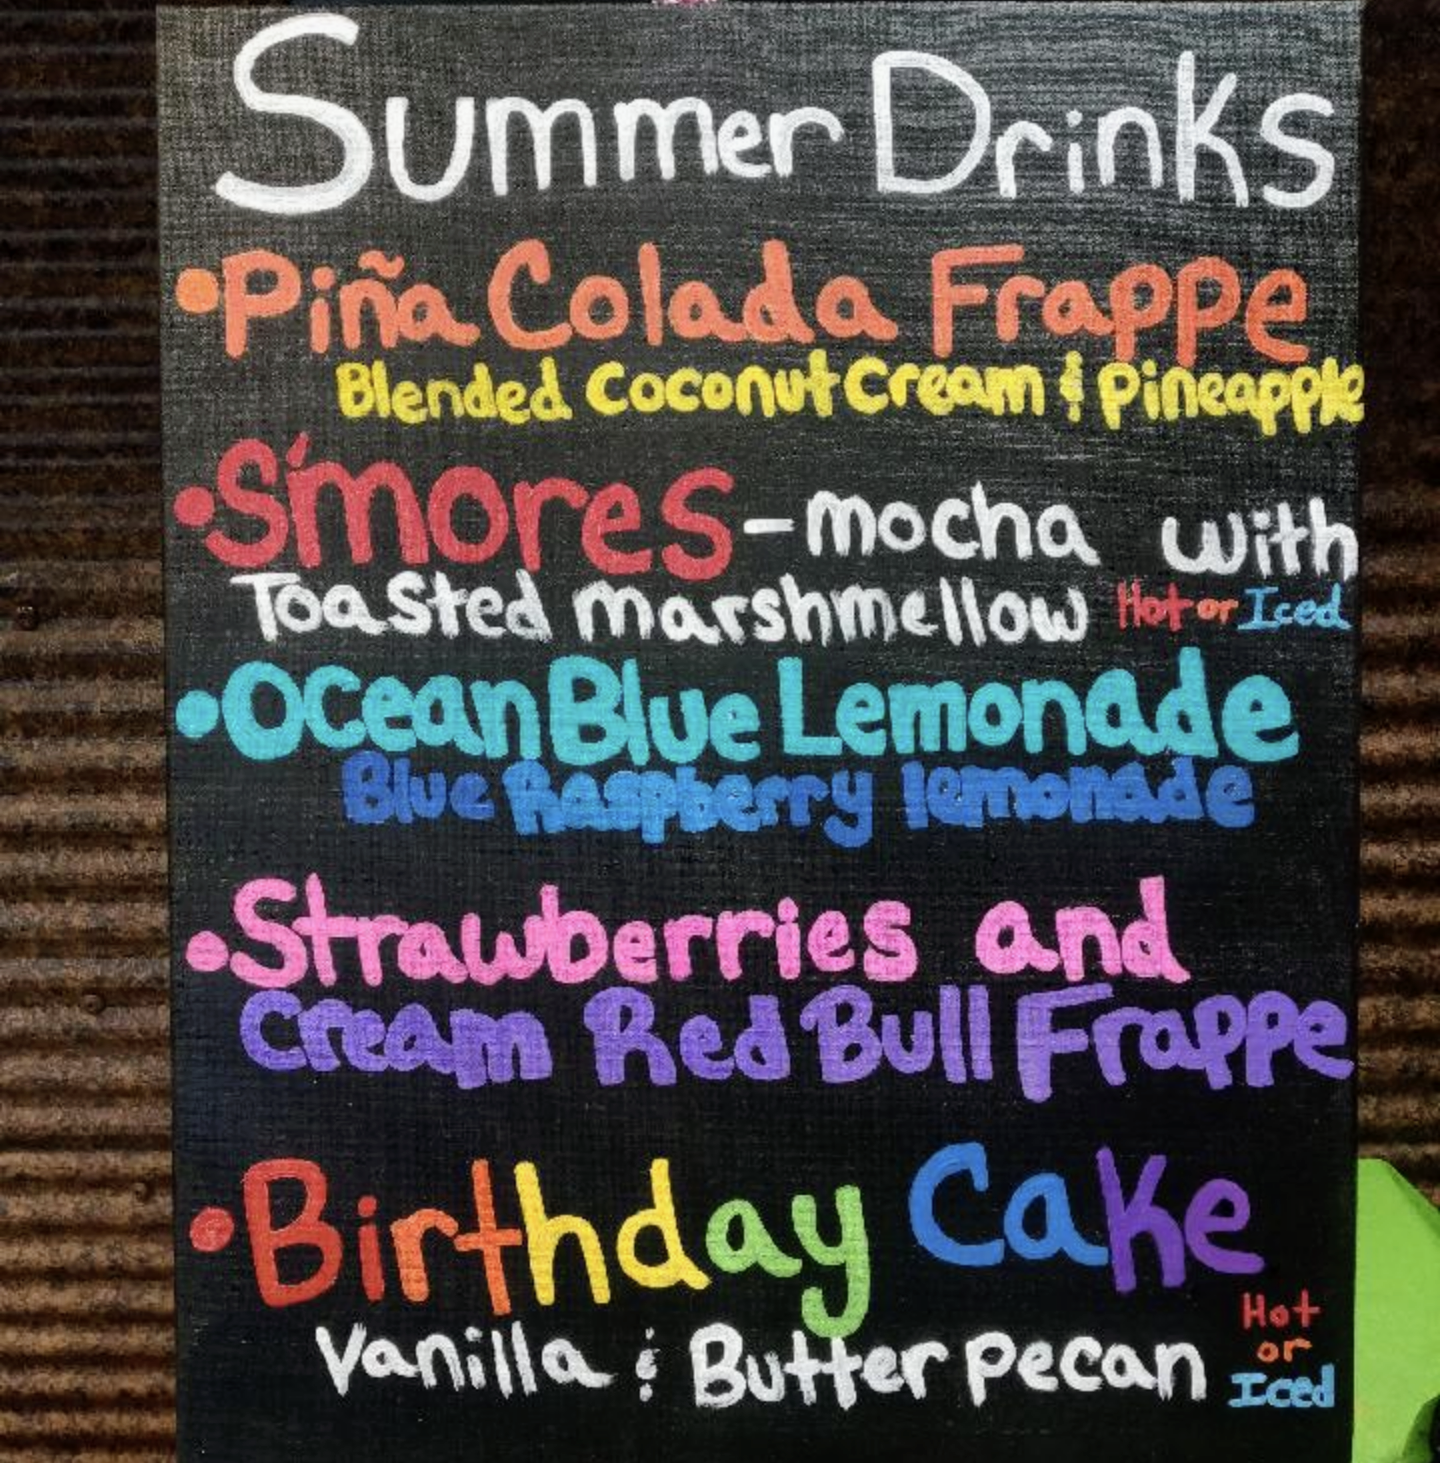 Summer Drinks
•Piña Colada Frappe
Blended Coconut Cream & Pineapple
•S'mores - mocha with
Toasted marshmellow Hot or Iced
•Ocean Blue Lemonade
Blue Raspberry lemonade
•Strawberries and
Cream Red Bull Frappe
•Birthday Cake
Vanilla & Butter pecan Hot
or
Iced